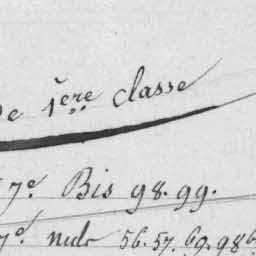 de 1ère classe
7e. Bis 98. 99.
7e. nulr 56. 57. 69. 98b